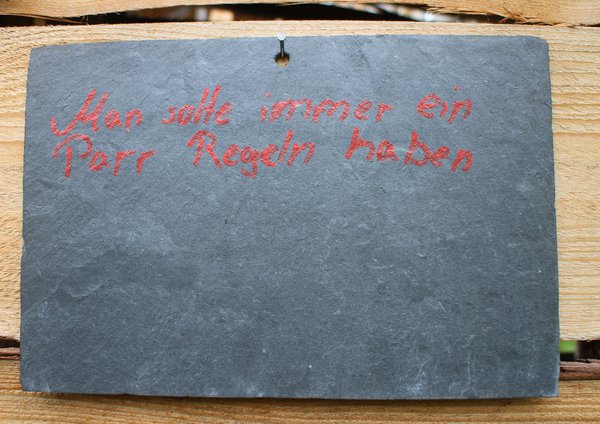 Man solle immer ein
Parr Regeln haben